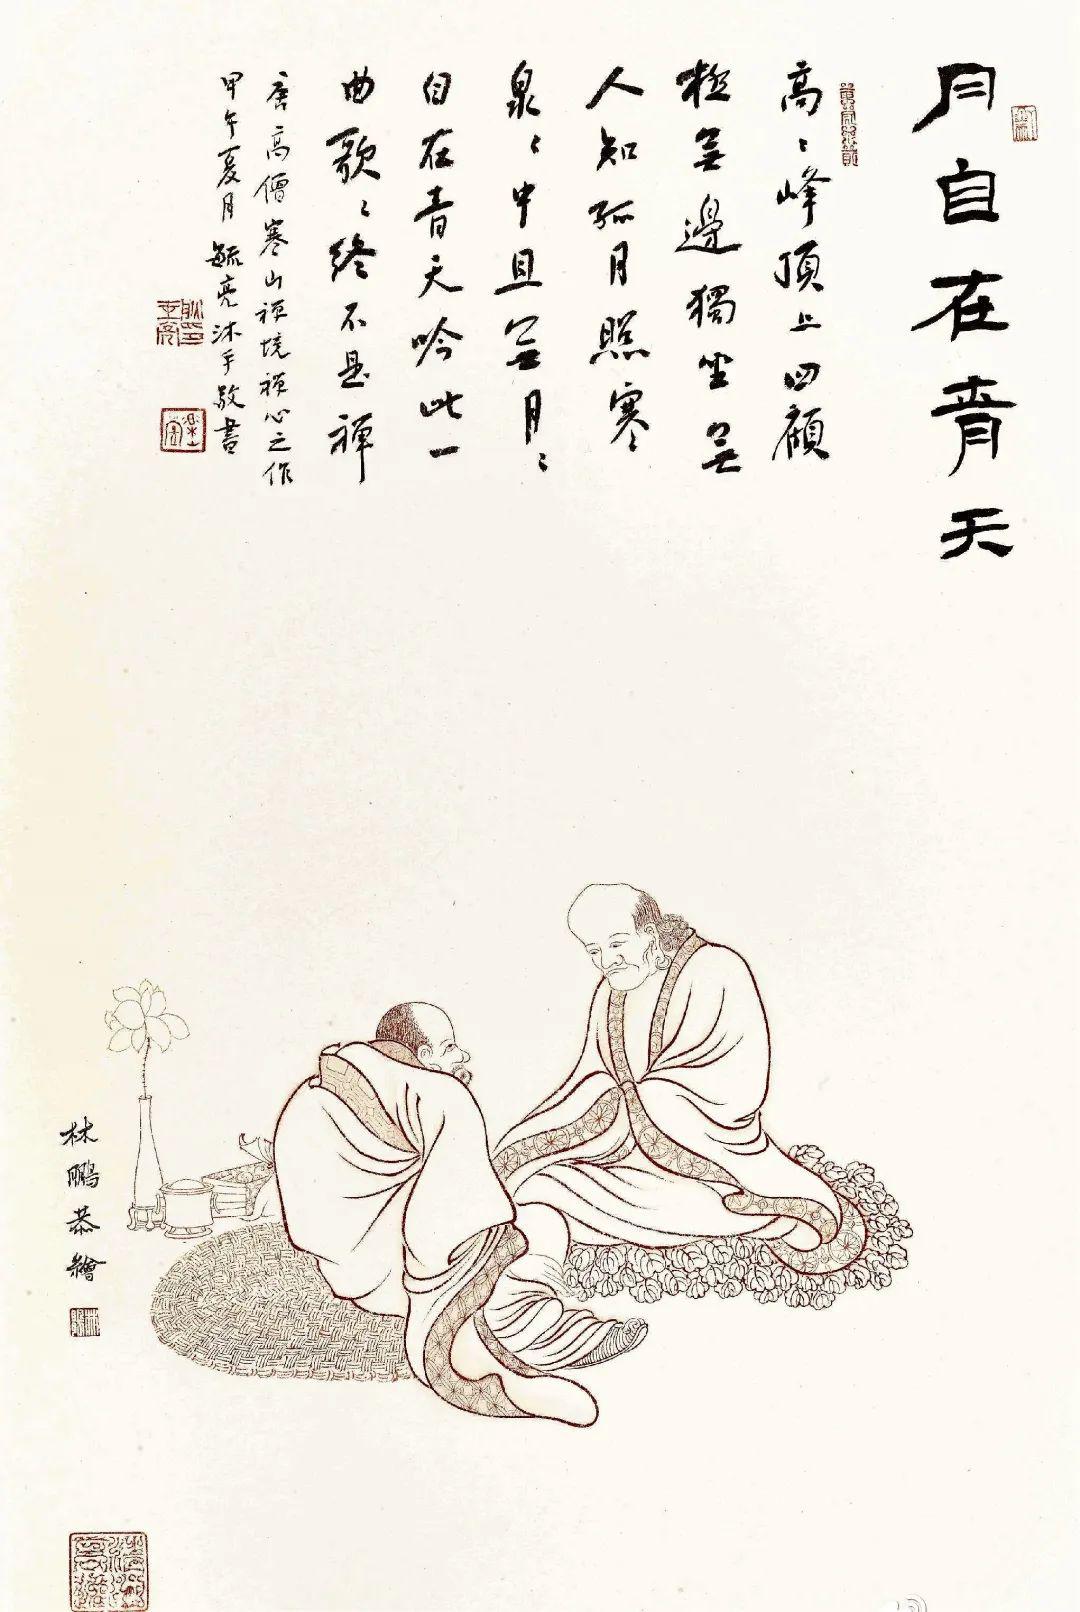 月自在青天
高〻峰頂上四顧
極無邊獨坐無
人知孤月照寒〻
泉〻中且無月〻
自在青天吟此一
曲歌〻終不是禪
唐高僧寒山禪境禪心之作
甲午夏月毓亮沐手敬書
林鵬恭繪